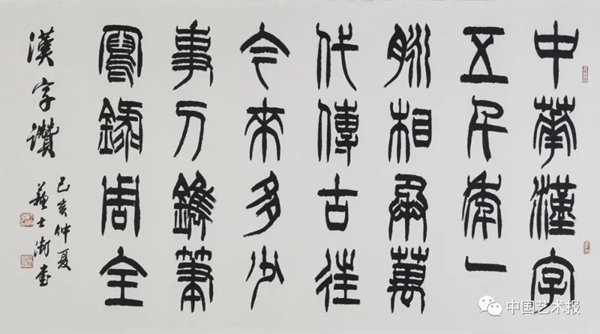 中華漢字
五千年一
脈相承萬
代傳古往
今來多少
事刀鐫筆
寫錄周全
漢字讚
己亥仲夏
蘇士澍書
中国艺术报